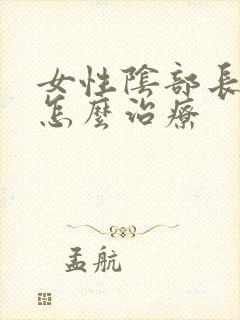 女性陰部長
怎麼治療
孟航